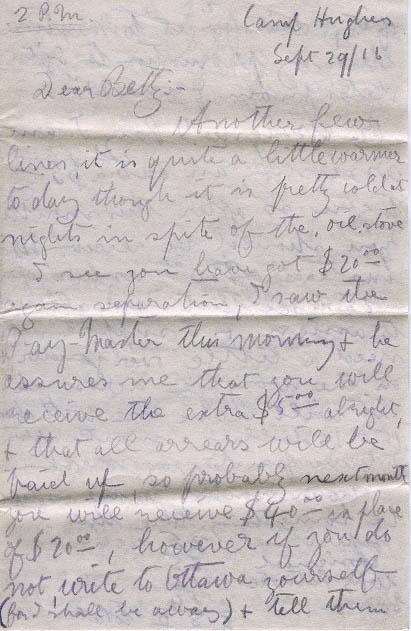 2 P.M.
Camp Hughes
Sept 29/16
Dear Betty:-
Another few
lines, it is quite a little warmer
to-day though it is pretty cold at
nights in spite of the, oil, stove
I see you have got $20.00
again separation, I saw the
Pay-Master this morning & he
assures me that you will
receive the extra $5.00 alright,
& that all arrears will be
paid up, so probably next month
you will receive $40.00 in place
of $20.00, however if you do
not, write to Ottawa yourself
(for I shall be away) & tell them